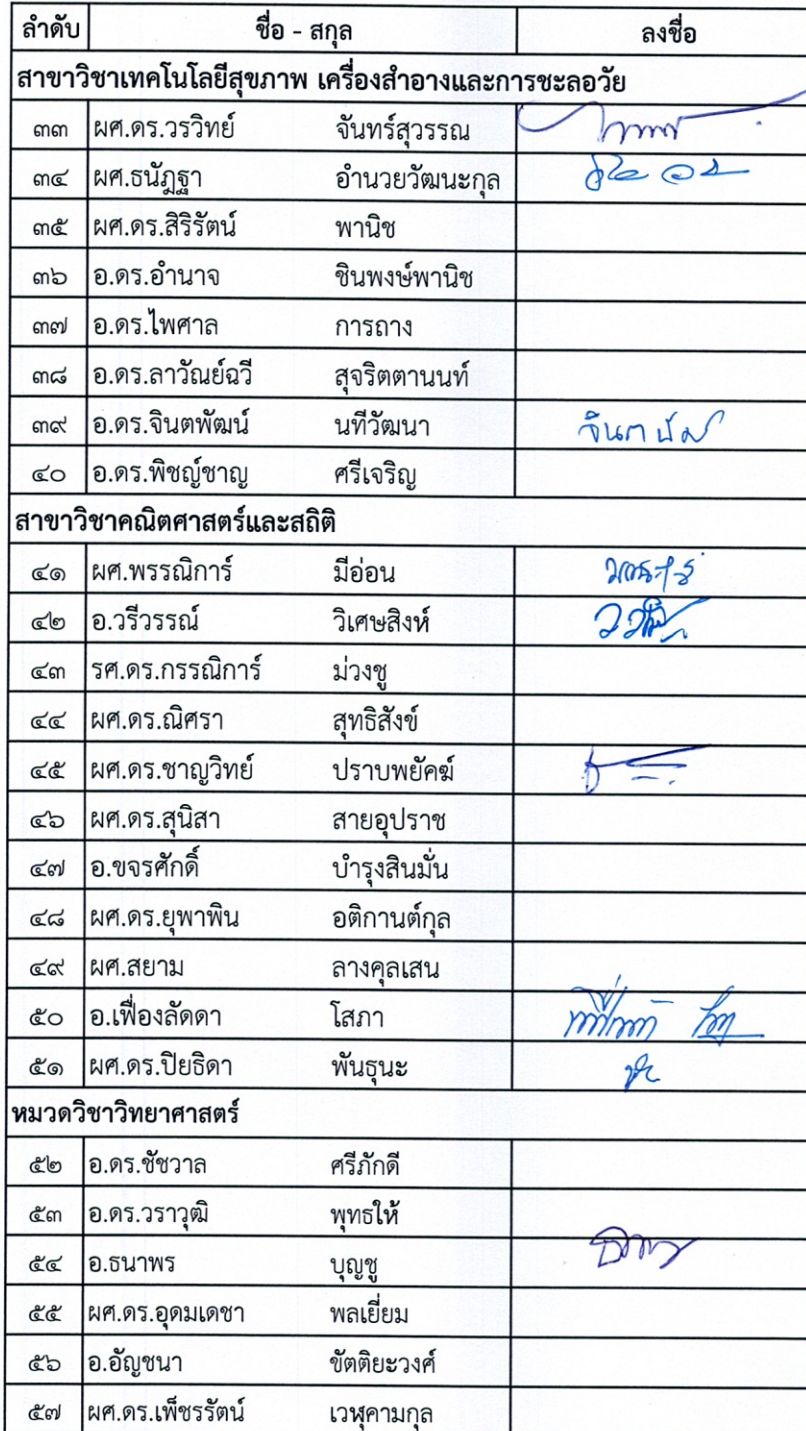 ลำดับ ชื่อ - สกุล ลงชื่อ
สาขาวิชาเทคโนโลยีสุขภาพ เครื่องสำอางและการชะลอวัย
๓๓ ผศ.ดร.วรวิทย์ จันทร์สุวรรณ
๓๔ ผศ.ธนัฎฐา อำนวยวัฒนะกุล
๓๕ ผศ.ดร.สิริรัตน์ พานิช
๓๖ อ.ดร.อำนาจ ชินพงษ์พานิช
๓๗ อ.ดร.ไพศาล การถาง
๓๘ อ.ดร.ลาวัณย์ฉวี สุจริตตานนท์
๓๙ อ.ดร.จินตพัฒน์ นทีวัฒนา
๔๐ อ.ดร.พิชญ์ชาญ ศรีเจริญ
สาขาวิชาคณิตศาสตร์และสถิติ
๔๑ ผศ.พรรณิการ์ มีอ่อน
๔๒ อ.วรีวรรณ์ วิเศษสิงห์
๔๓ รศ.ดร.กรรณิการ์ ม่วงชู
๔๔ ผศ.ดร.ณิศรา สุทธิสังข์
๔๕ ผศ.ดร.ชาญวิทย์ ปราบพยัคฆ์
๔๖ ผศ.ดร.สุนิสา สายอุปราช
๔๗ อ.ขจรศักดิ์ บำรุงสินมั่น
๔๘ ผศ.ดร.ยุพาพิน อติกานต์กุล
๔๙ ผศ.สยาม ลางคุลเสน
๕๐ อ.เฟื่องลัดดา โสภา
๕๑ ผศ.ดร.ปิยธิดา พันธุนะ
หมวดวิชาวิทยาศาสตร์
๕๒ อ.ดร.ชัชวาล ศรีภักดี
๕๓ อ.ดร.วราวุฒิ พุทธให้
๕๔ อ.ธนาพร บุญชู
๕๕ ผศ.ดร.อุดมเดชา พลเยี่ยม
๕๖ อ.อัญชนา ขัตติยะวงศ์
๕๗ ผศ.ดร.เพ็ชรรัตน์ เวฬุคามกุล